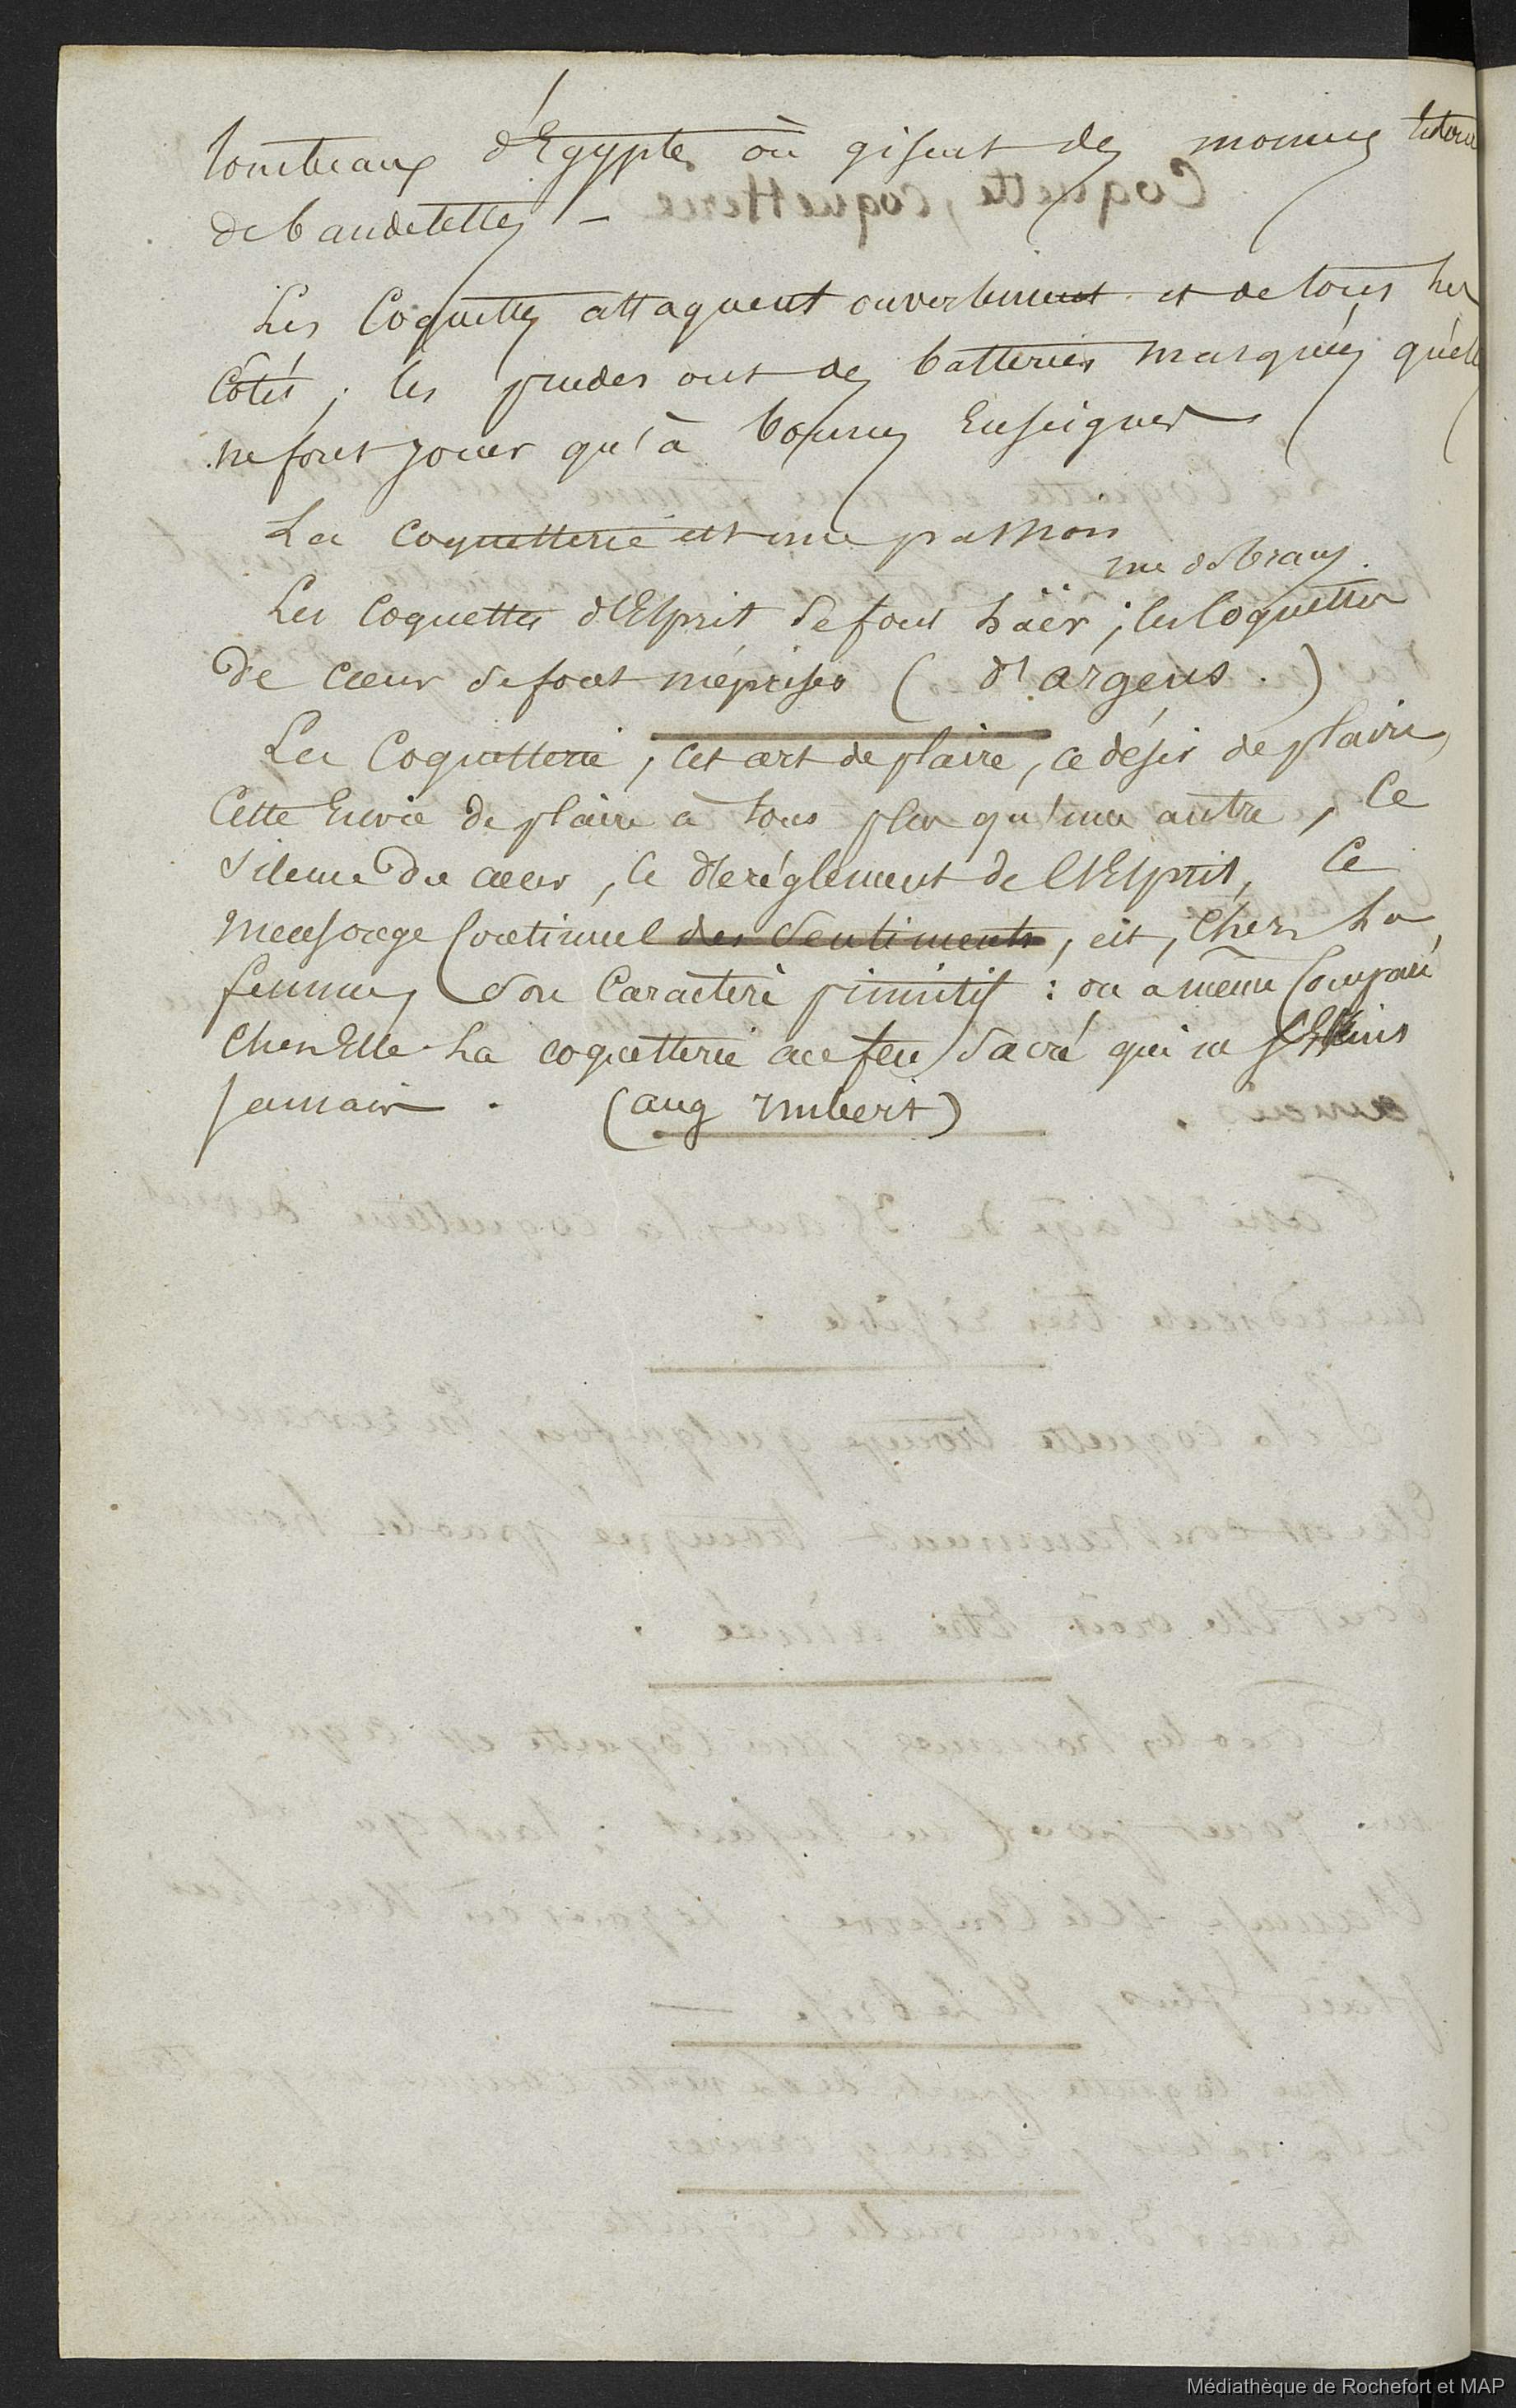 tombeaux d'Egypte où gisent des momies
de bandelettes –
Les Coquettes attaquent ouvertement et de tous les
Côtés ; les prudes ont des batteries masquées qu'elle
ne font jouer qu'à bonnes Enseignes
La coquetterie est une passion
Les Coquettes d'Esprit se font häer ; les Coquettes
de Cœur se font mépriser ( d'argens . )
La Coquetterie , cet art de plaire , ce désir de plaire,
Cette Envie de plaire à tous plus qu'une autre , Ce
Silence du cœur , ce dereglement de l'Esprit, Ce
mensonge Continuel des Sentiments , est , Chez la
femme, son Caractère pimitif : on a même Comparé
Chez Elle la coquetterie au feu Sacré qui ne
Jamais . (aug Imbert)
Médiathèque de Rochefort et MAP